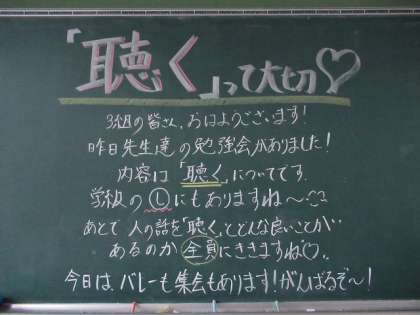 「聴く」って大切♡
3組の皆さん、おはようございます!
昨日先生達の勉強会がありました!
内容は「聴く」についてです。
学級のⓁにもありますね〜
あとで人の話を「聴く」とどんな良いことが‥
あるのか全員にききますね♡‥
今日は、バレーも集会もあります!がんばるぞ〜!